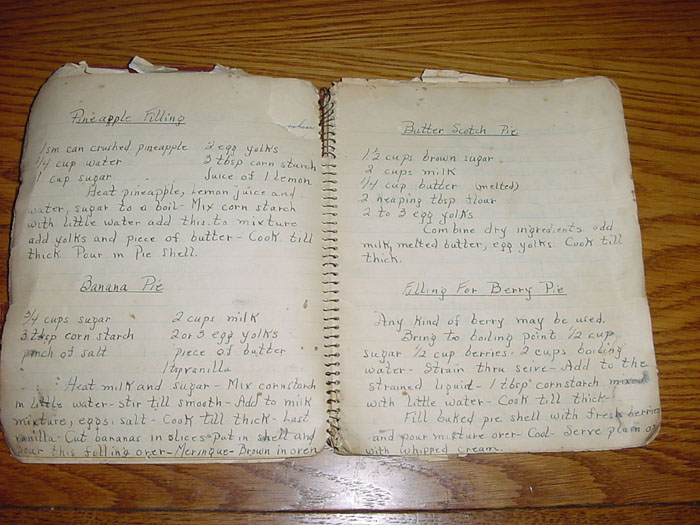 Pineapple Filling
1 sm can crushed pineapple
1/4 cup water
1 cup sugar
2 egg yolks
3 tbsp corn starch
Juice of 1 Lemon
Heat pineapple, Lemon juice and
water, sugar to a boil - Mix corn starch
with little water add this to mixture
add yolks and piece of butter - Cook till
thick. Pour in Pie Shell.
Banana Pie
3/4 cups sugar
3 tbsp corn starch
pinch of salt
2 cups milk
2 or 3 egg yolks
piece of butter
1 tsp vanilla
Heat milk and sugar - Mix cornstarch
in little water - stir till smooth - Add to milk
mixture, eggs, salt - Cook till thick - Last
vanilla - Cut bananas in slices - put in shell and
pour this filling over - Meringue - Brown in oven
Butter Scotch Pie
1 1/2 cups brown sugar
2 cups milk
1/4 cup butter (melted)
2 heaping tbsp flour
2 to 3 egg yolks
Combine dry ingredients add
milk, melted butter, egg yolks. Cook till
thick.
Filling For Berry Pie
Any kind of berry may be used.
Bring to boiling point 1/2 cup
sugar 1/2 cup berries - 2 cups boiling
water - Strain thru seive - Add to the
strained liquid - 1 tbsp cornstarch mixed
with little water - Cook till thick -
Fill baked pie shell with fresh berries
and pour mixture over - Cool - Serve plain or
with whipped cream.